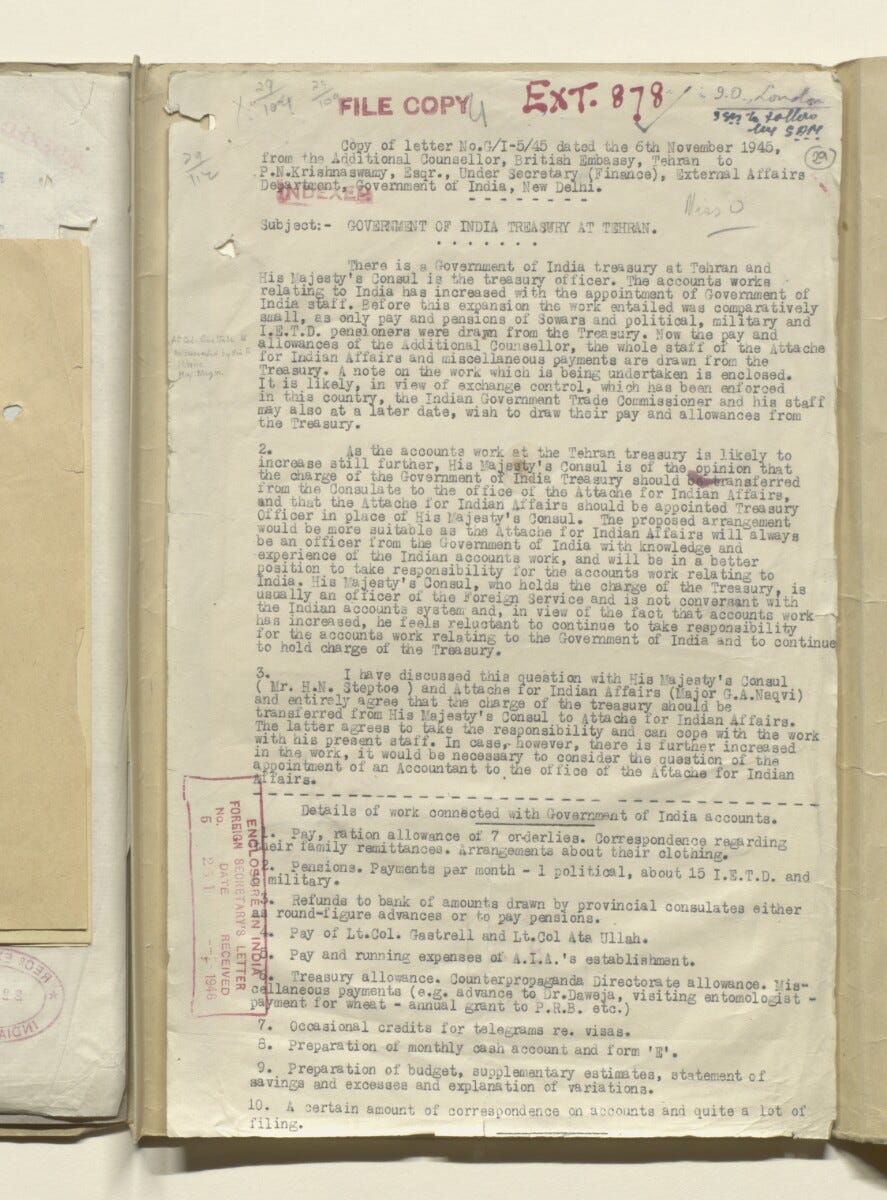 FILE COPY
EXT. 878
I.O., London
29
Copy of letter No.G/I-5/45 dated the 6th November 1945,
from the Additional Counsellor, British Embassy, Tehran to
P.N.Krishnaswamy, Esqr., Under Secretary (Finance), External Affairs
Department, Government of India, New Delhi.
INDEXED
Subject:- GOVERNMENT OF INDIA TREASURY AT TEHRAN.
There is a Government of India treasury at Tehran and
His Majesty's Consul is the treasury officer. The accounts works
relating to India has increased with the appointment of Government of
India staff. Before this expansion the work entailed was comparatively
small, as only pay and pensions of Sowars and political, military and
I.E.T.D. pensioners were drawn from the Treasury. Now the pay and
allowances of the Additional Counsellor, the whole staff of the Attache
for Indian Affairs and miscellaneous payments are drawn from the
Treasury. A note on the work which is being undertaken is enclosed.
It is likely, in view of exchange control, which has been enforced
in this country, the Indian Government Trade Commissioner and his staff
may also at a later date, wish to draw their pay and allowances from
the Treasury.
2. As the accounts work at the Tehran treasury is likely to
increase still further, His Majesty's Consul is of the opinion that
the charge of the Government of India Treasury should be transferred
from the Consulate to the office of the Attache for Indian Affairs,
and that the Attache for Indian Affairs should be appointed Treasury
Officer in place of His Majesty's Consul. The proposed arrangement
would be more suitable as the Attache for Indian Affairs will always
be an officer from the Government of India with knowledge and
experience of the Indian accounts work, and will be in a better
position to take responsibility for the accounts work relating to
India. His Majesty's Consul, who holds the charge of the Treasury, is
usually an officer of the Foreign Service and is not conversant with
the Indian accounts system and, in view of the fact that accounts work
has increased, he feels reluctant to continue to take responsibility
for the accounts work relating to the Government of India and to continue
to hold charge of the Treasury.
3. I have discussed this question with His Majesty's Consul
( Mr. H.N. Steptoe ) and Attache for Indian Affairs (Major G.A.Naqvi)
and entirely agree that the charge of the treasury should be
transferred from His Majesty's Consul to Attache for Indian Affairs.
The latter agrees to take the responsibility and can cope with the work
with his present staff. In case, however, there is further increased
in the work, it would be necessary to consider the question of the
appointment of an Accountant to the office of the Attache for Indian
Affairs.
Details of work connected with Government of India accounts.
1. Pay, ration allowance of 7 orderlies. Correspondence regarding
their family remittances. Arrangements about their clothing.
2. Pensions. Payments per month - 1 political, about 15 I.E.T.D. and
military.
3. Refunds to bank of amounts drawn by provincial consulates either
as round-figure advances or to pay pensions.
4. Pay of Lt.Col. Gastrell and Lt.Col Ata Ullah.
5. Pay and running expenses of A.I.A.'s establishment.
6. Treasury allowance. Counterpropaganda Directorate allowance. Mis-
cellaneous payments (e.g. advance to Dr.Daweja, visiting entomologist -
payment for wheat - annual grant to P.R.B. etc.)
7. Occasional credits for telegrams re. visas.
8. Preparation of monthly cash account and form 'E'.
9. Preparation of budget, supplementary estimates, statement of
savings and excesses and explanation of variations.
10. A certain amount of correspondence on accounts and quite a lot of
filing.
ENCLOSURE IN INDIA
FOREIGN SECRETARY'S LETTER
No. DATE RECEIVED
5 1946